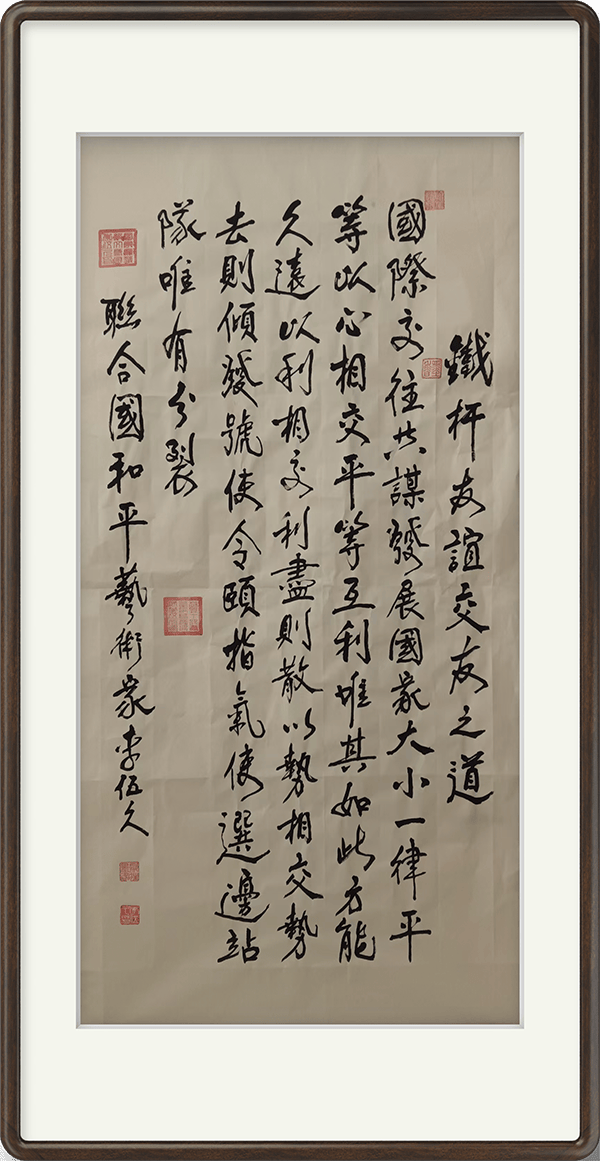 鐵杆友誼交友之道
國際交往共謀發展國家大小一律平
等以心相交平等互利惟其如此方能
久遠以利相交利盡則散以勢相交勢
去則傾發號使令頤指氣使選邊站
隊唯有分裂
聯合國和平藝術家李伍久